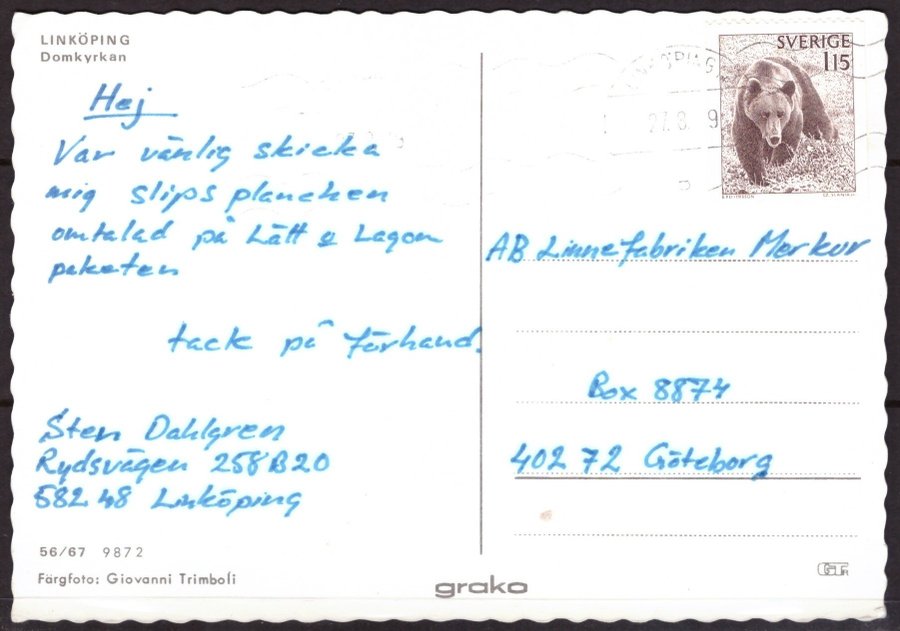 LINKÖPING
Domkyrkan
Hej
Var vänlig skicka
mig slipsplanchen
omtalad på Lätt & Lagom
paketen
tack på förhand.
Sten Dahlgren
Rydsvägen 258 B20
582 48 Linköping
56/67 9872
Färgfoto: Giovanni Trimboli
grako
SVERIGE
1 15
27.8. 9
AB Linnefabriken Merkur
Box 8874
402 72 Göteborg